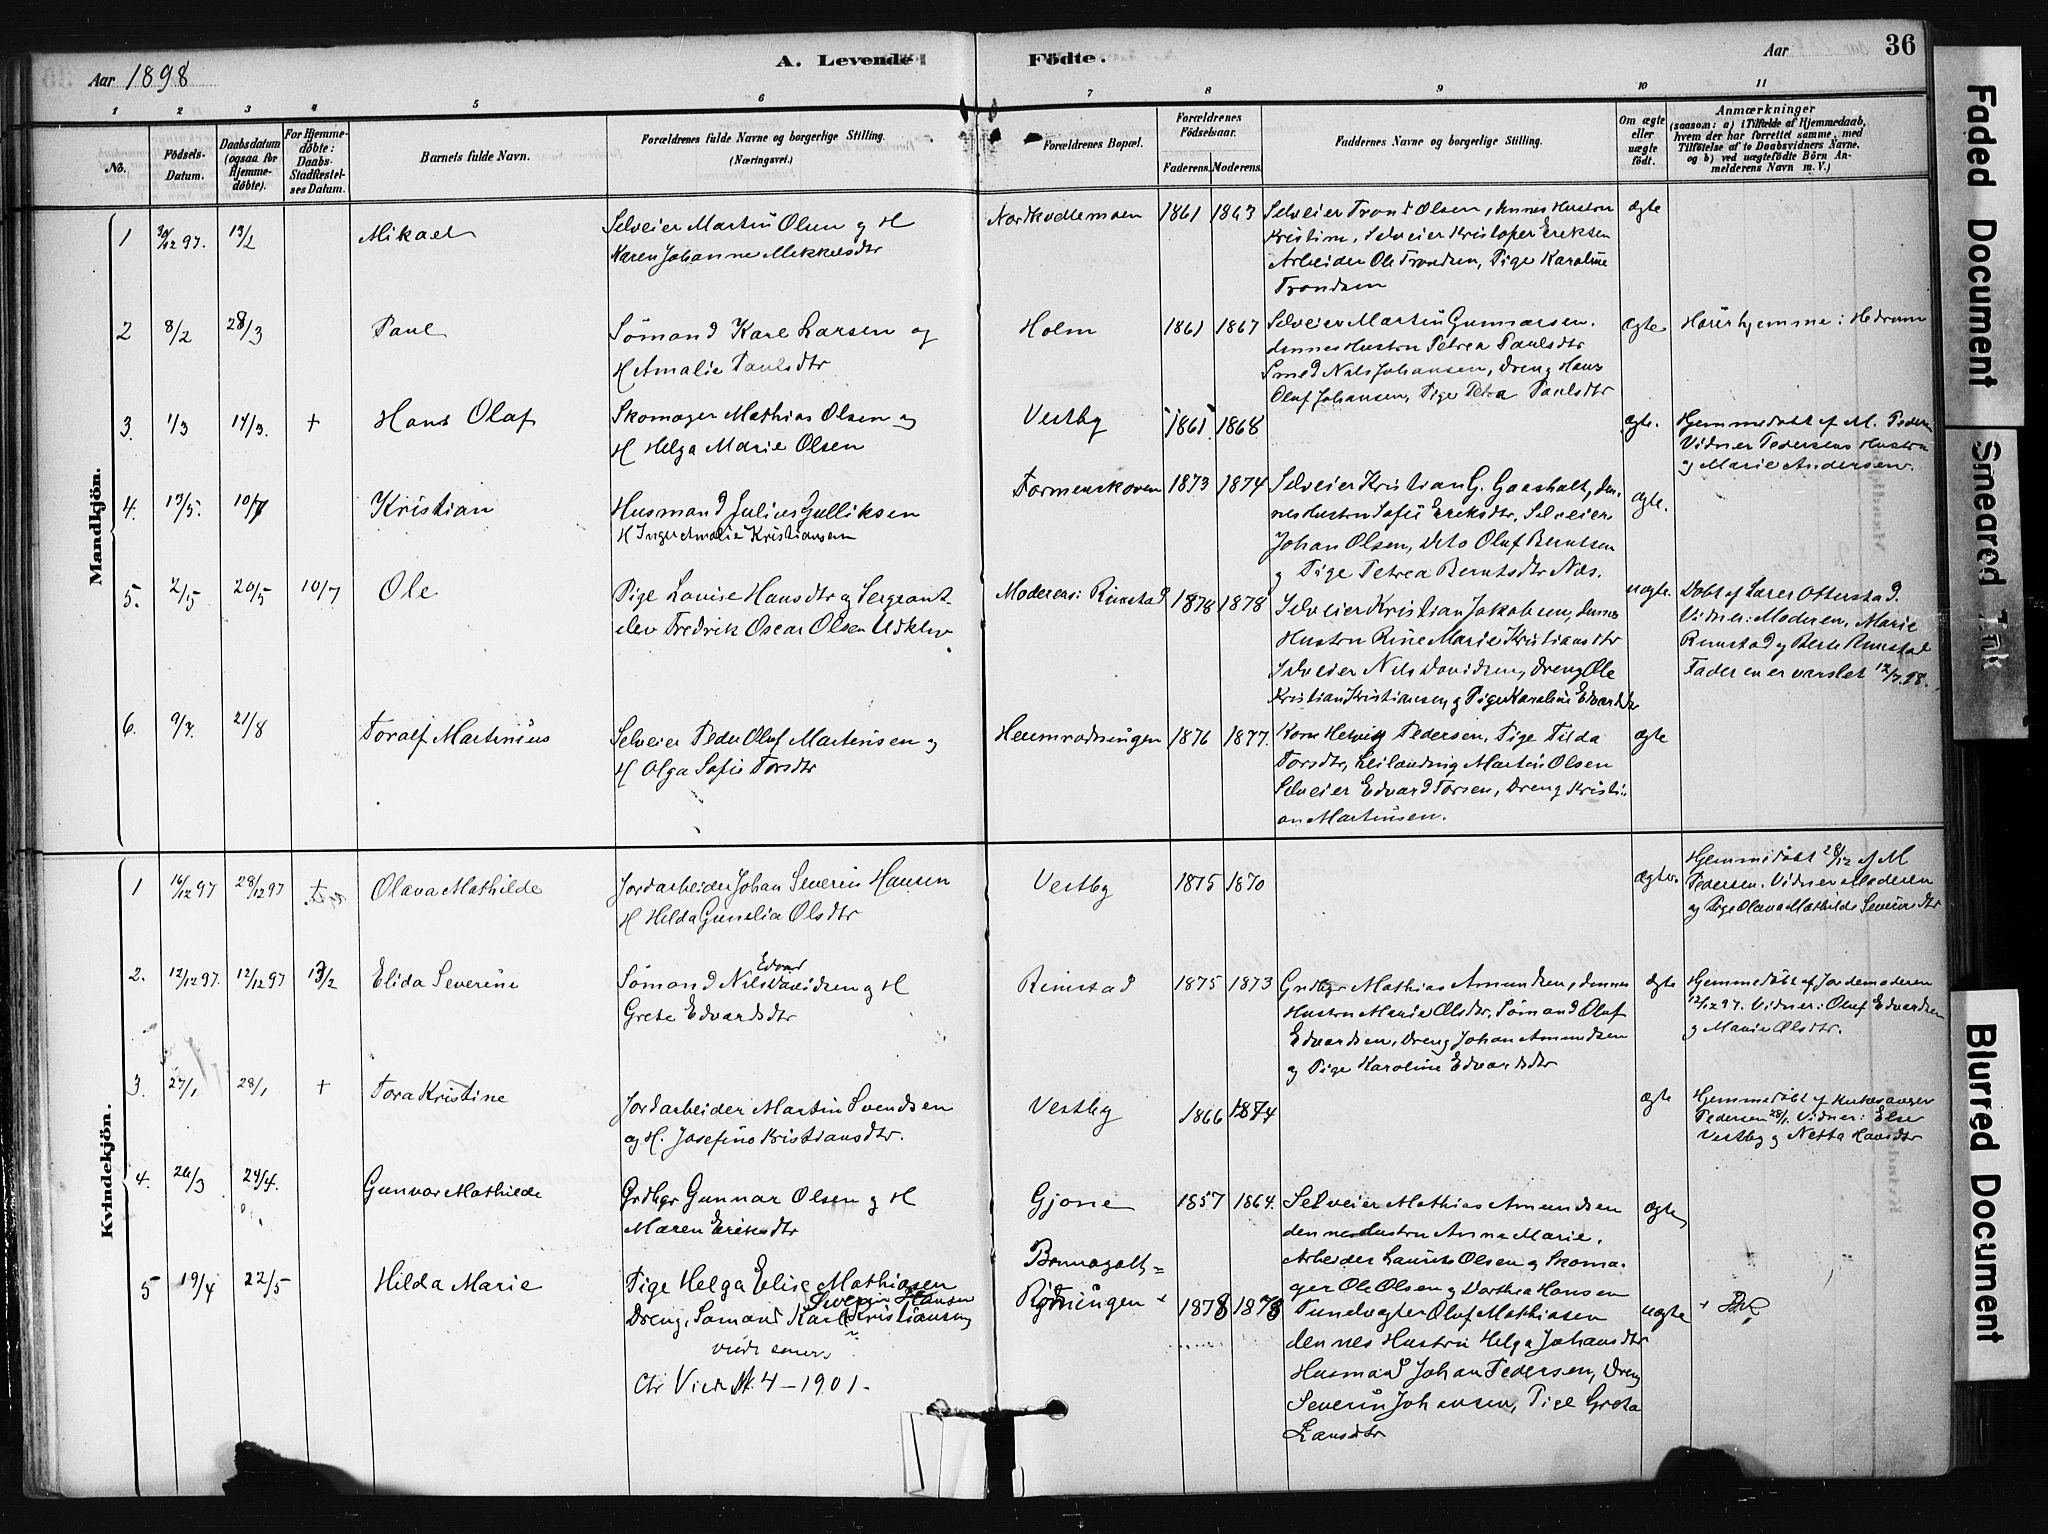 Aar 1898
A. Levende
Födte.
Aar
36
1 2 3 4 5 6 7 8 9 10 11
No.
Födsels-
Datum.
Daabsdatum
(ogsaa for
Hjemme-
döbte).
For Hjemme-
döbte:
Daabs-
Stadfæstel-
ses Datum.
Barnets fulde Navn.
Forældrenes fulde Navne og borgerlige Stilling.
(Næringsvei.)
Forældrenes Bopæl.
Forældrenes
Födselsaar.
Faderens. Moderens.
Faddernes Navne og borgerlige Stilling.
Om ægte
eller
uægte
födt.
Anmærkninger
(saasom: a) i Tilfælde af Hjemmedaab,
hvem der har forrettet samme, med
Tilföielse af to Daabsvidners Navne,
og b) ved uægtefödte Börn An-
melderens Navn m. V.)
Mandkjön.
1 30/12 97. 13/2 Mikael
Selveier Martin Olsen og H
Karen Johanne Mikkelsdtr
1861 1863
Selveier Trond Olsen, dennes Hustru
Kristine, Selveier Kristofer Eriksen
Arbeider Ole Trondsen, Pige Karoline
Trondsen
ægte
2 8/2 28/3 Paul
Sömand Karl Larsen og
H Amalie Paulsdtr
Holm 1861 1867
Selveier Martin Gunnarsen,
dennes Hustru Petrea Paulsdtr
Smed Nils Johansen, Dreng Hans
Oluf Johansen, Pige Petra Paulsdtr
ægte
Hörer hjemme i Hedrum
3. 1/3 14/3. + Hans Olaf
Skomager Mathias Olsen og
H Helga Marie Olsen
Vestby 1861. 1868
ægte.
Hjemmedöbt af M. Pedersen
Vidner Pedersens Hustru
og Marie Andersen.
4. 13/5. 10/7 Kristian
Husmand Julius Gulliksen
H Inger Amalie Kristiansen
1873 1874
Selveier Kristian G. Gaasholt, den-
nes Hustru Sofie Eriksdtr, Selveier
Johan Olsen, Dito Oluf Berntsen
og Pige Petrea Berntsdtr Næs.
ægte.
5. 2/5 20/5 10/7 Ole
Pige Lovise Hansdtr og Sergeant-
elev Fredrik Oscar Olsen Udklev
Moderens: Rimstad 1878 1878
Selveier Kristian Jakobsen, dennes
Hustru Rine Marie Kristiansdtr
Selveier Nils Davidsen, Dreng Ole
Kristian Kristiansen og Pige Karoline Edvardsdtr
uægte.
Döbt af Lærer Otterstad.
Vidner: Moderen, Marie
Rimstad og Berte Rimstad
Faderen er varslet 12/7.98.
6. 9/7. 21/8 Toralf Martinius
Selveier Peder Oluf Martinsen og
H Olga Sofie Torsdtr
1876 1877.
Kone Helvig Pedersen, Pige Tilda
Torsdtr, Martin Olsen
Selveier Edvard Torsen, Dreng Kristi-
an Martinsen.
ægte
Kvindekjön.
1 16/12 97 28/12 97 Olava Mathilde
Jordarbeider Johan Severin Hansen
H Hilda Gunelia Olsdtr
Vestby 1875 1870
ægte.
Hjemmedöbt 28/12 af M
Pedersen. Vidner Moderen
og Pige Olava Mathilde Severinsdtr
2. 12/12 97. 12/12 97 13/2 Elida Severine
Sömand Nils Edvard Davidsen og H
Grete Edvardsdtr
Rimstad 1875 1873
Grdbgr Mathias Amundsen, dennes
Hustru Marie Olsdtr, Sömand Oluf
Edvardsen, Dreng Johan Amundsen
og Pige Karoline Edvardsdtr
ægte
Hjemmedöbt af Jordemoderen
12/12 97. Vidner: Oluf Edvardsen
og Marie Olsdtr.
3. 27/1 28/1 + Tora Kristine
Jordarbeider Martin Svendsen
og H. Josefine Kristiansdtr.
Vestby 1866 1874
ægte
Hjemmedöbt af Kirkesanger
Pedersen 28/1. Vidner: Else
Vestby og Netta Hansdtr
4. 26/3 24/4. Gunvor Mathilde
Grdbgr Gunnar Olsen og H
Maren Eriksdtr
Gjone 1857 1864.
Selveier Mathias Amundsen
dennes Hustru Anne Marie,
Arbeider Laurits Olsen og Skoma-
ger Ole Olsen og Dorthea Hansen
ægte
5 19/4 22/5 Hilda Marie
Pige Helga Elise Mathiasen
Severin Hansen
Dreng, Sömand Karl Kristiansen
Cfr Viede № 4 - 1901.
1878 1878
Oluf Mathiasen
dennes Hustru Helga Johansdtr
Husmand Johan Pedersen, Dreng
Severin Johansen, Pige Greta
Larsdtr
uægte
Faded Document
Smeared Ink
Blurred Document